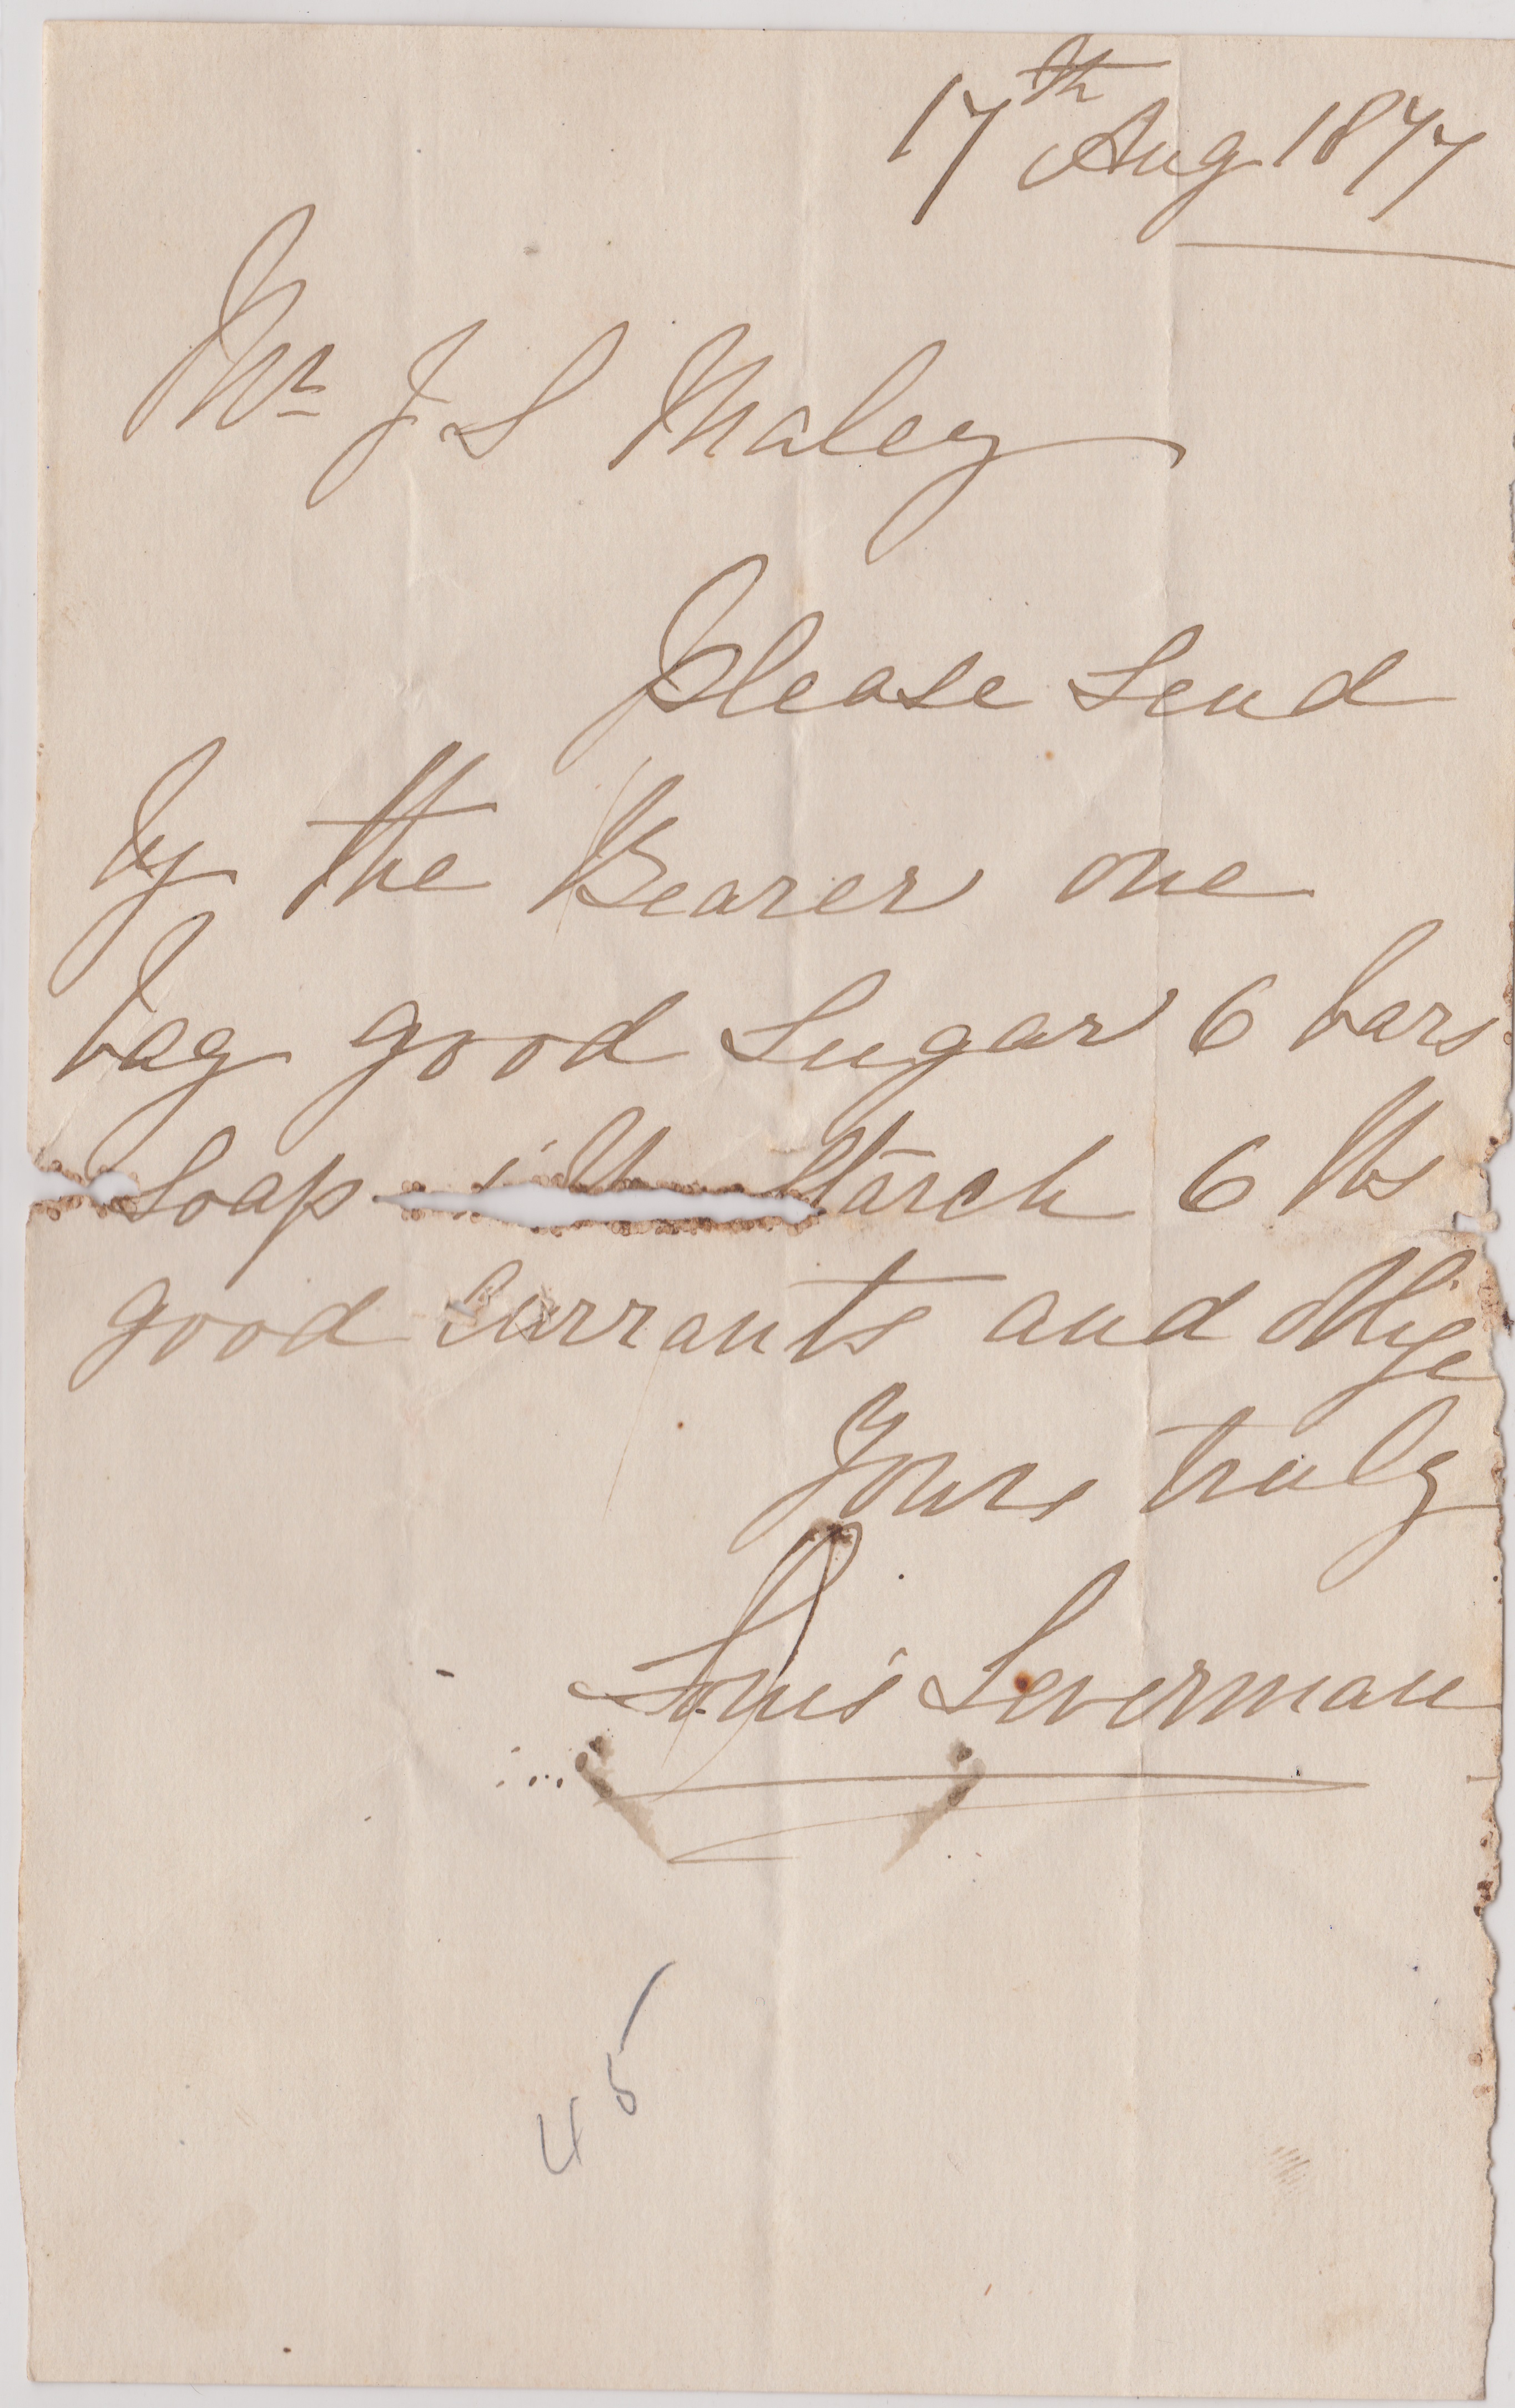 17th Aug 1877
Mr J S Maley
Please send
by the Bearer one
bag good Sugar 6 bars
Soap Starch 6 lbs
good Currants and oblige
Yours truly
Louis Leverman
45